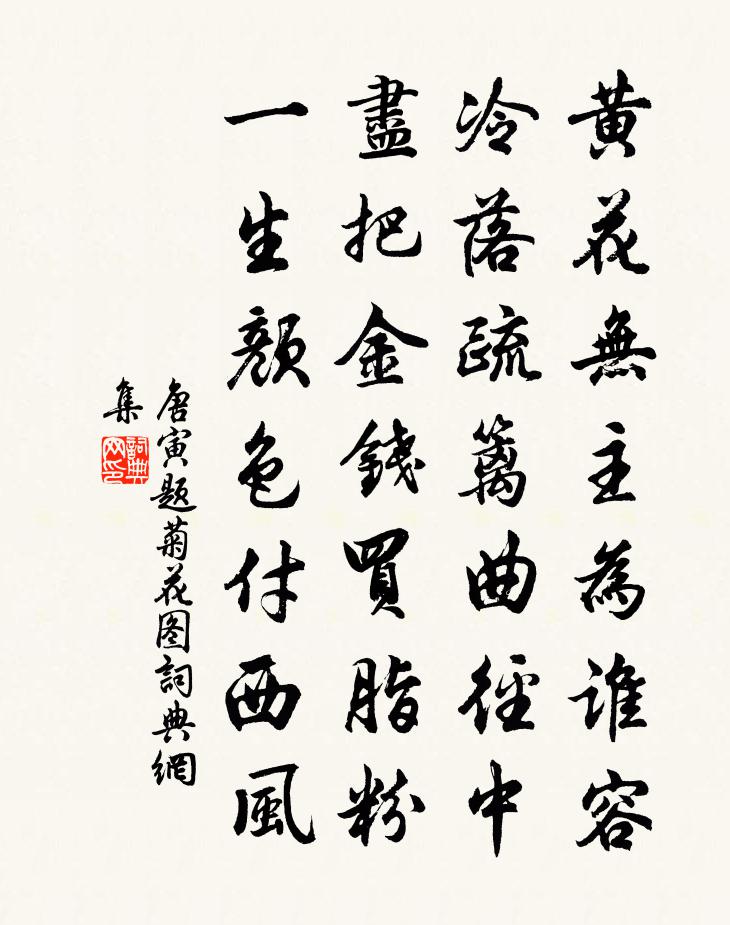 黃花無主為誰容
冷落疏籬曲徑中
盡把金錢買脂粉
一生顏色付西風
唐寅題菊花图詞典網
集
詞典
网印